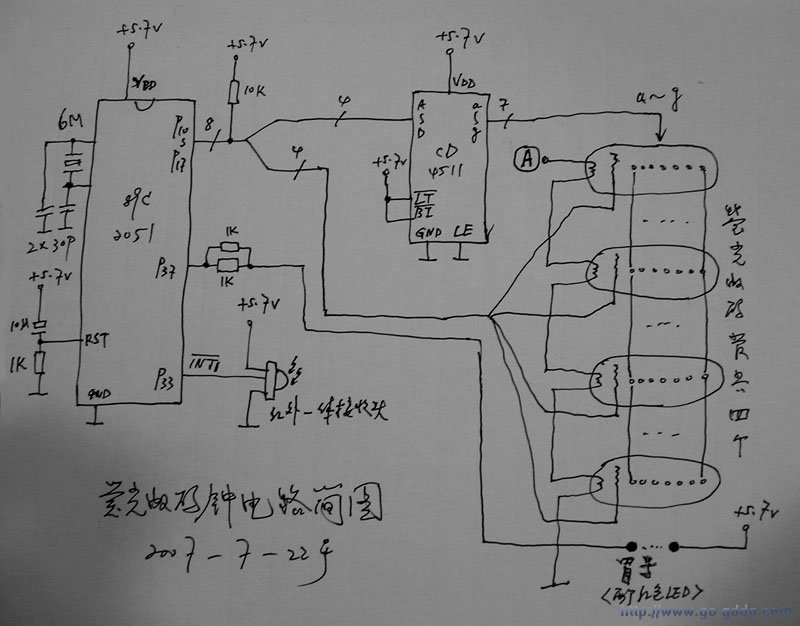 +5.7V
+5.7V
+5.7V
VDD
10K
VDD
a~g
6M
P10
S
P17
8
4
A
S
D
a
S
g
7
4
CD
4511
+5.7V
A
89C
2051
LT
BI
GND LE
2×30P
1K
P37
1K
+5.7V
+5.7V
10µ
1K
RST
INT1
P33
GND
红外一体接收头
荧光数码管共四个
荧光数码钟电路简图
2007-7-22号
+5.7V
冒号
<两个红色LED>